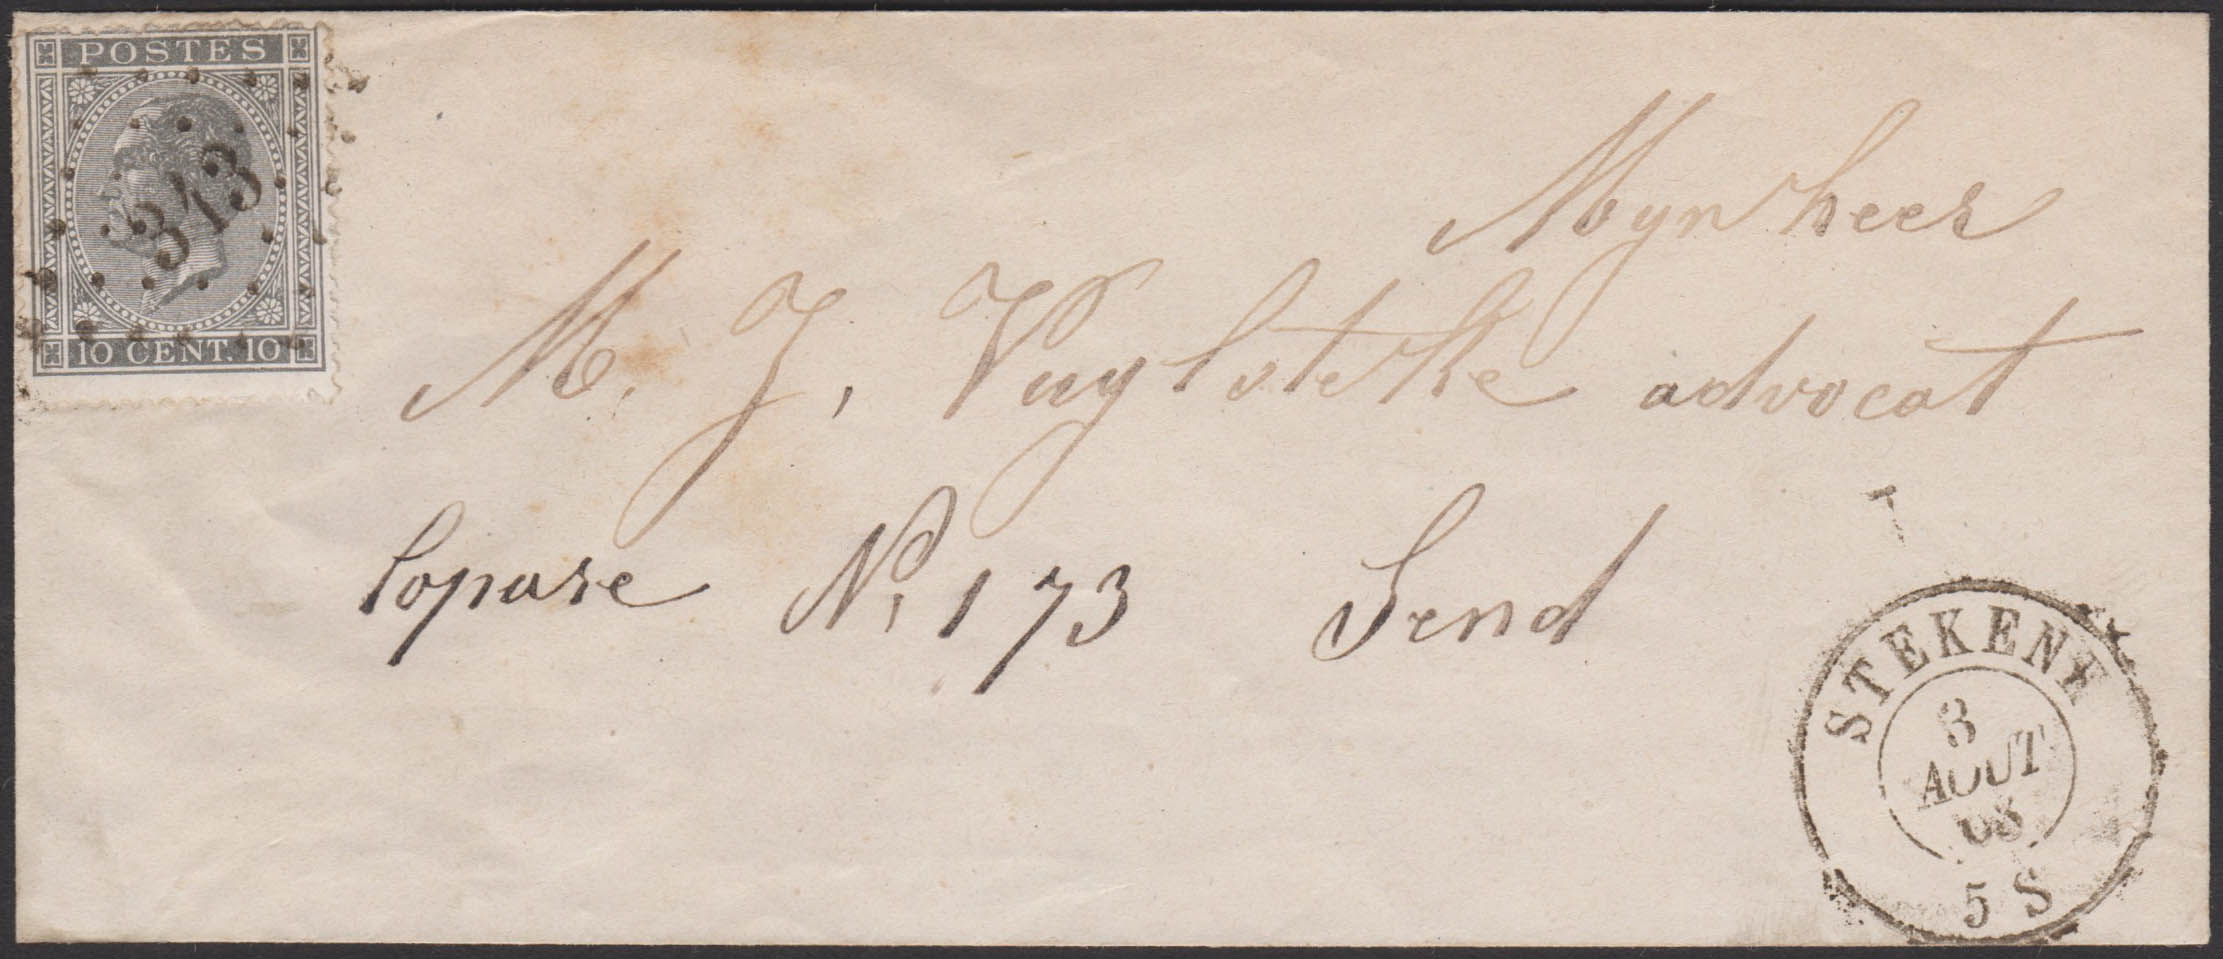 POSTES
343
10 CENT. 10
Mynheer
M. J. Vuylsteke advocat
Copure No. 173 Gend
STEKENE
3
AOUT
68
5 S